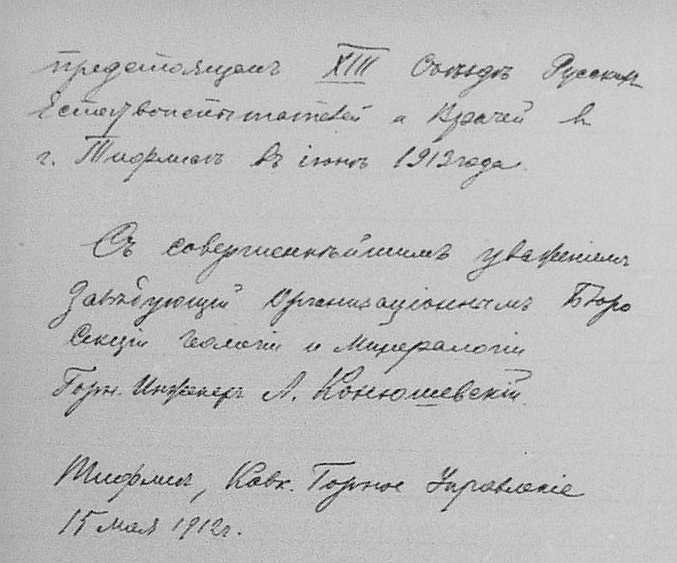 предстоящемъ XIII Съѣздѣ Русскихъ
Естествоиспытателей и Врачей въ
г. Тифлисѣ въ іюнѣ 1913 года.
Съ совершеннѣйшимъ уваженіемъ
Завѣдующій Организаціоннымъ Бюро
Секціи Геологіи и Минералогіи
Горн. Инженеръ А. Конюшевскій.
Тифлисъ, Кавк. Горное Управленіе
15 мая 1912 г.